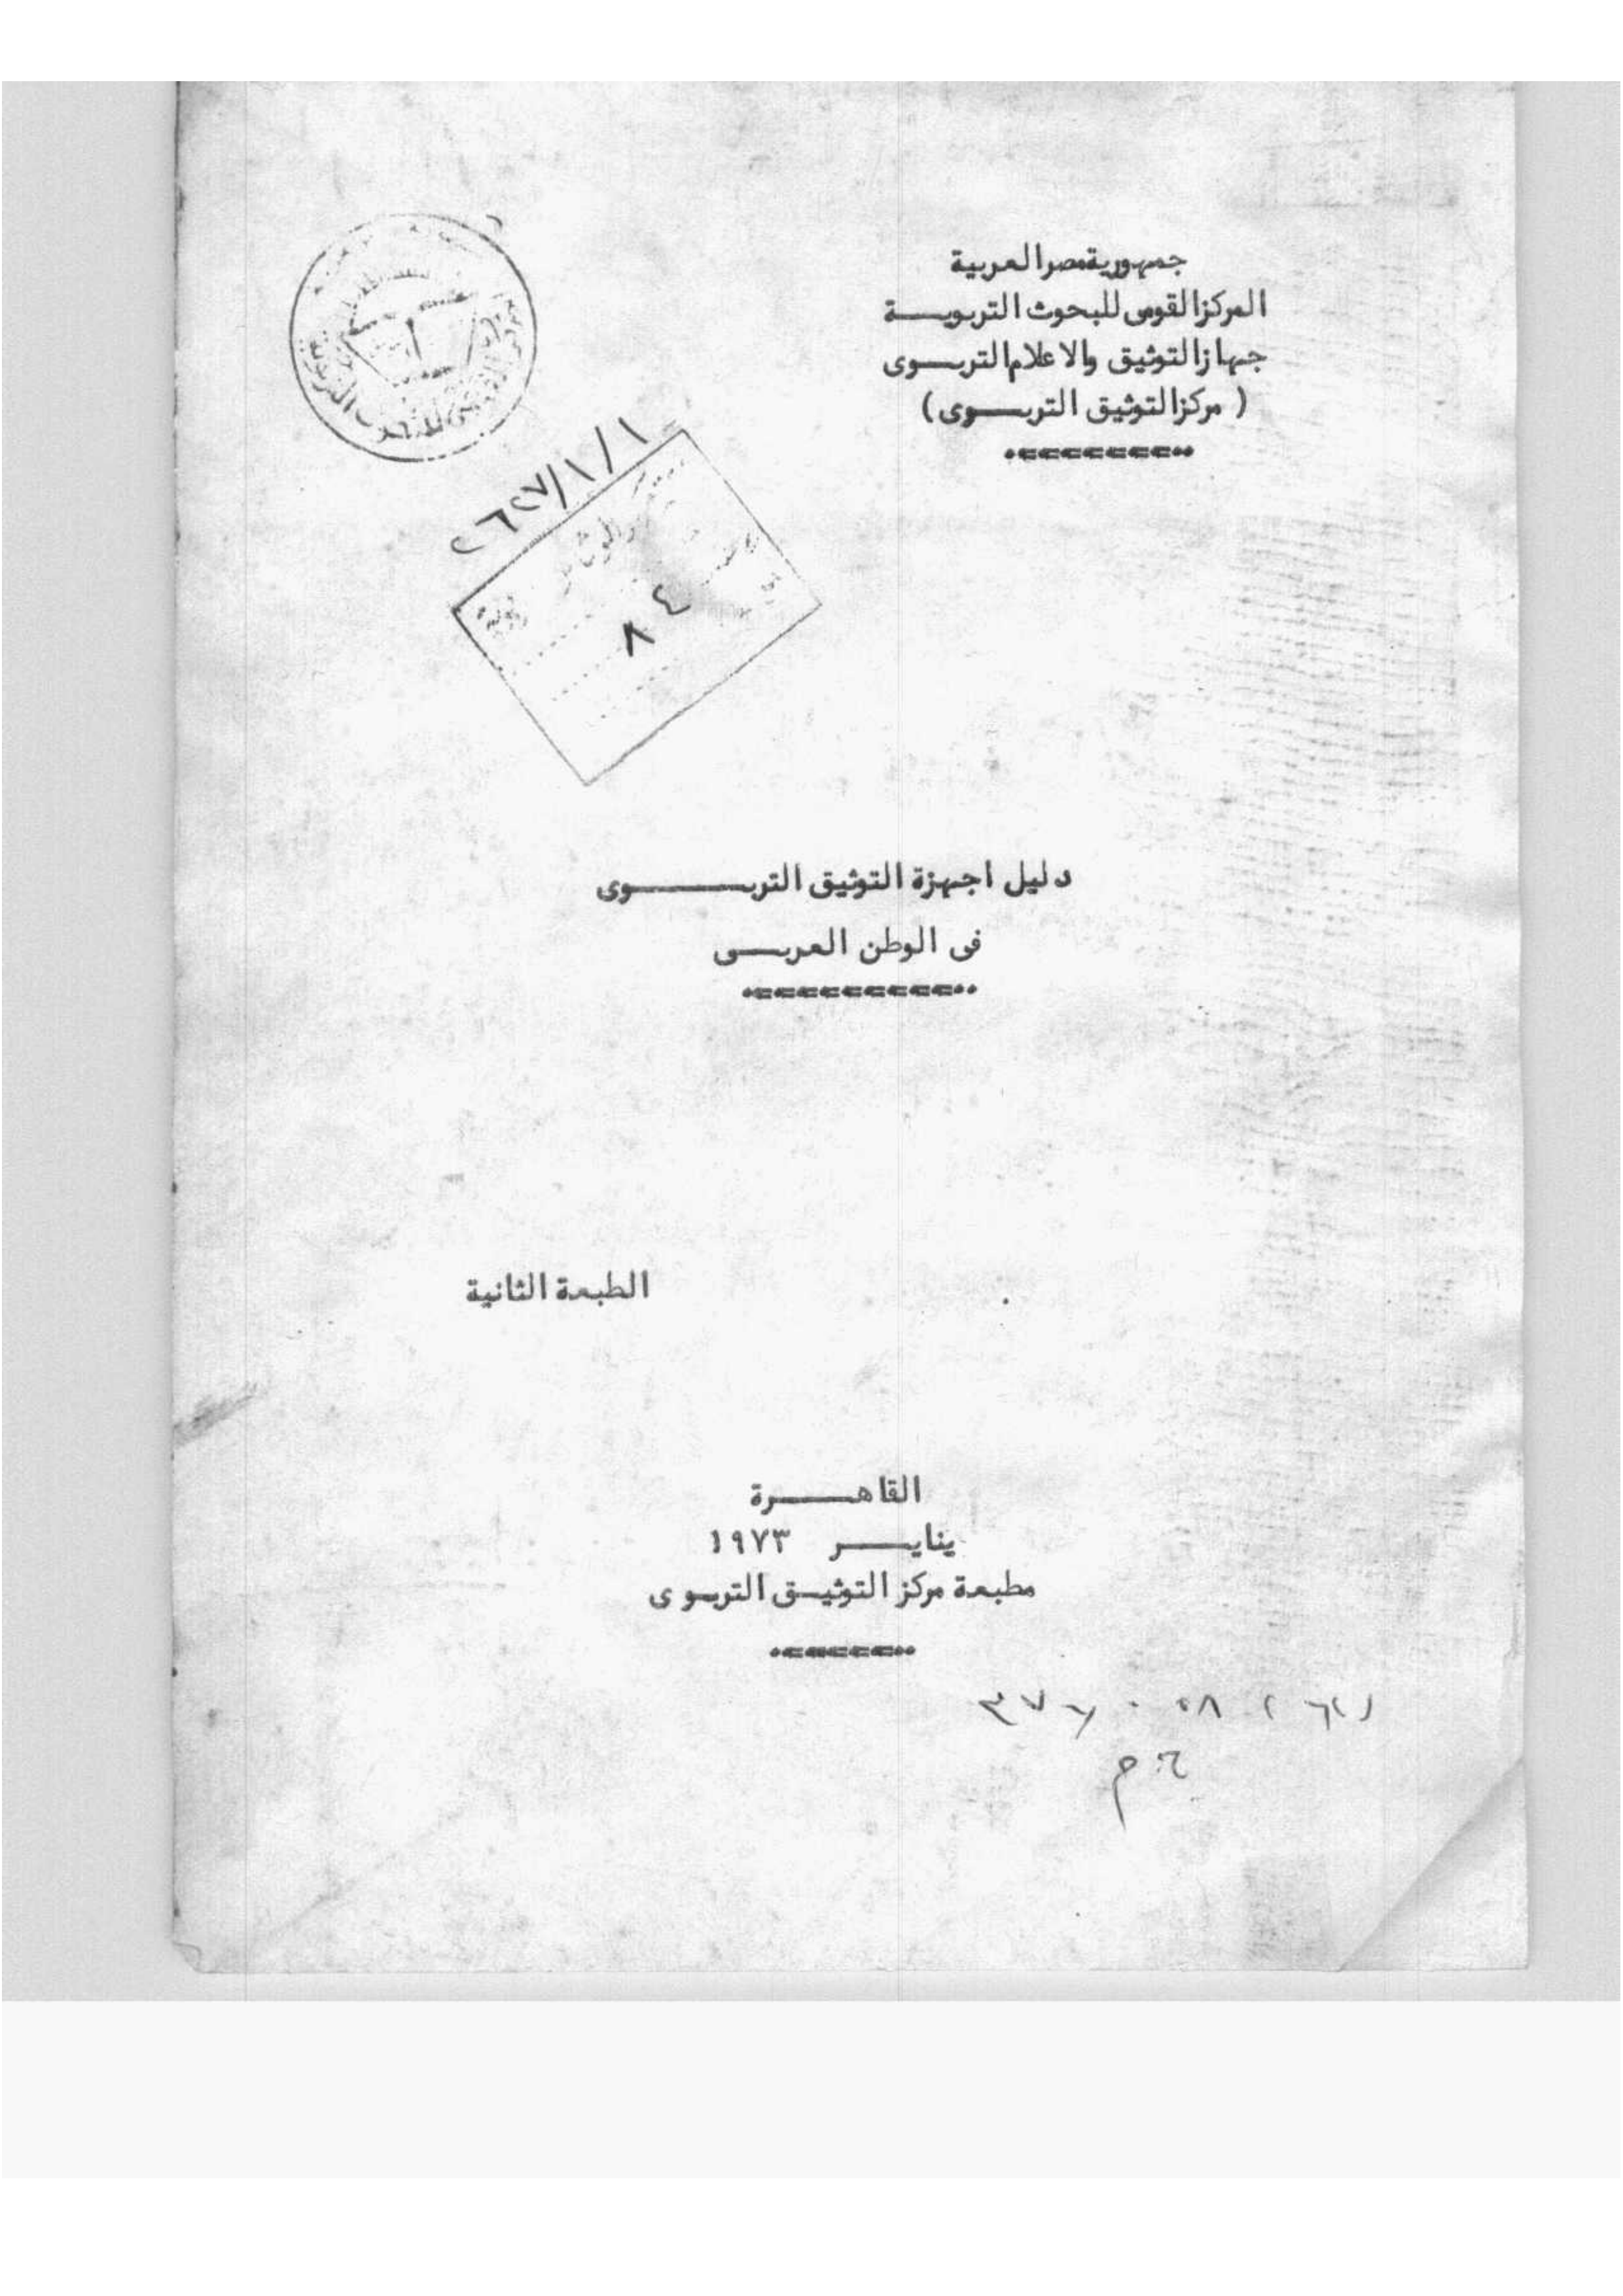 جمهورية مصر العربية
المركز القومى للبحوث التربويـــة
جهاز التوثيق والاعلام التربـــوى
( مركز التوثيق التربـــوى )
١/١/
٨٤
دليل اجهزة التوثيق التربـــــوى
فى الوطن العربـــى
الطبعة الثانية
القاهـــرة
ينايـــر ١٩٧٣
مطبعة مركز التوثيــق التربوى